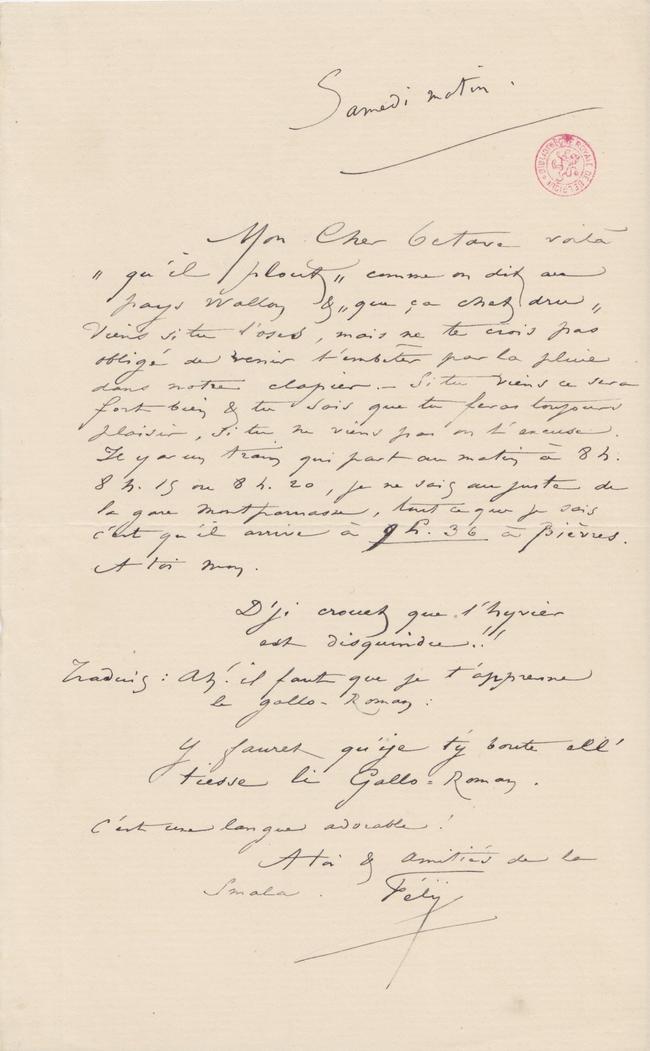 Samedi matin.
BIBLIOTHÈQUE ROYALE DE BELGIQUE
Mon Cher Octave voilà
„ qu'il plout „ comme on dit au
pays Wallon & „ que ça chet dru „
Viens si tu l'oses, mais ne te crois pas
obligé de venir t'embêter par la pluie
dans notre clapier. – Si tu viens ce sera
fort bien & tu sais que tu feras toujours
plaisir, si tu ne viens pas on t'excuse.
Il y a un train qui part au matin à 8 h.
8 h. 15 ou 8 h. 20, je ne sais au juste de
la gare Montparnasse, tout ce que je sais
c'est qu'il arrive à 9 h. 36 à Bièvres.
A toi mon.
D'ji crouet que l'hyvier
est disquindu!!
Traduis : Ah! il faut que je t'apprenne
le gallo-Roman :
Y fauret qu'ije t'y boute ell'
tiesse li Gallo-Roman.
C'est une langue adorable !
A toi & amitiés de la
Smala. Fély